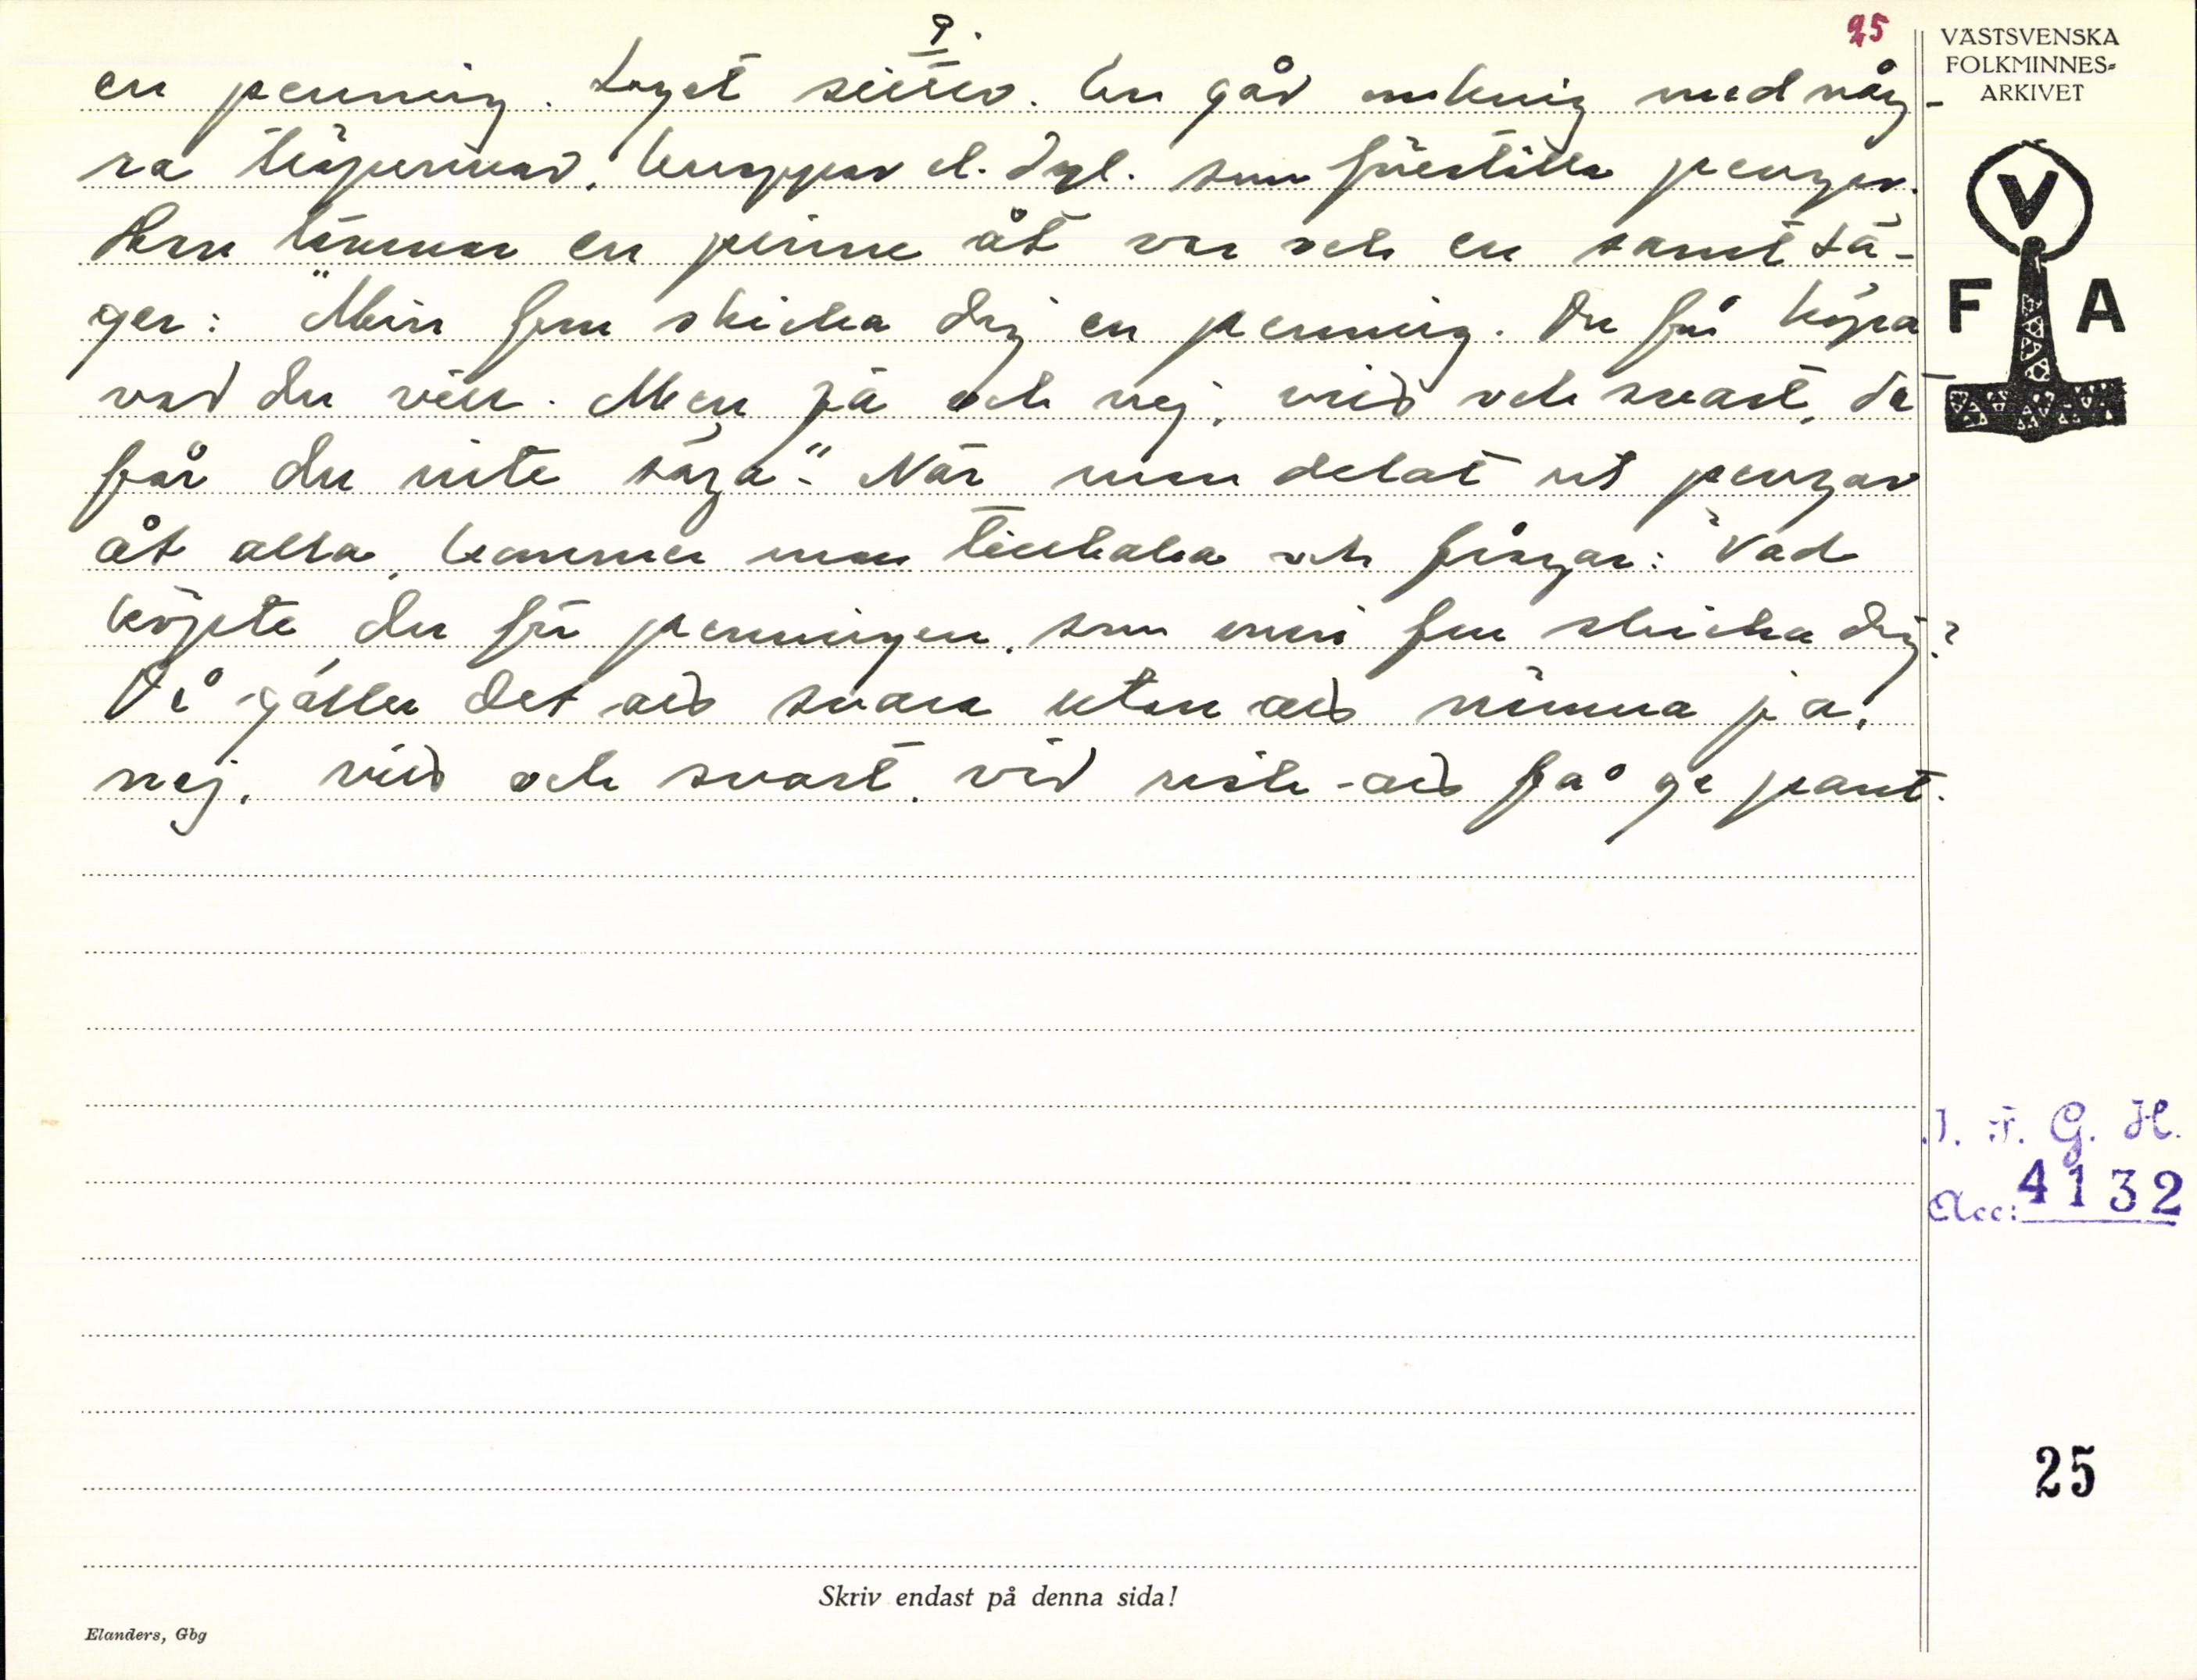 9.
25
en penning. Laget sitter. En går omkring med någ-
ra träpinnar, knappar el. dyl. som föreställa pengar.
Hen lämnar en pinne åt var och en samt sä-
ger: "Min fru skicka dig en penning. Du får köpa
vad du vill. Men ja och nej, vitt och svart, de
får du inte säga". När man delat ut pengar
åt alla, kommer man tillbaka och frågar: "Vad
köpte du för penningen, som min fru skicka dig?
Då gäller det att svara utan att nämna ja,
nej, vitt och svart, vid risk att få ge pant.
VÄSTSVENSKA
FOLKMINNES-
ARKIVET
V
F A
I. F. G. H.
Acc: 4132
25
Skriv endast på denna sida!
Elanders, Gbg